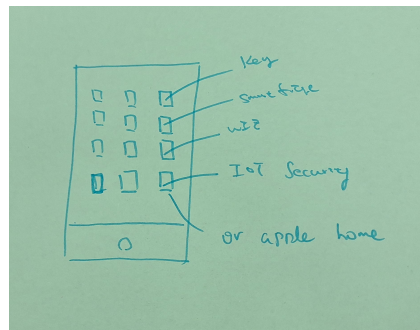 Key
smart fridge
WIZ
IoT Security
or apple home